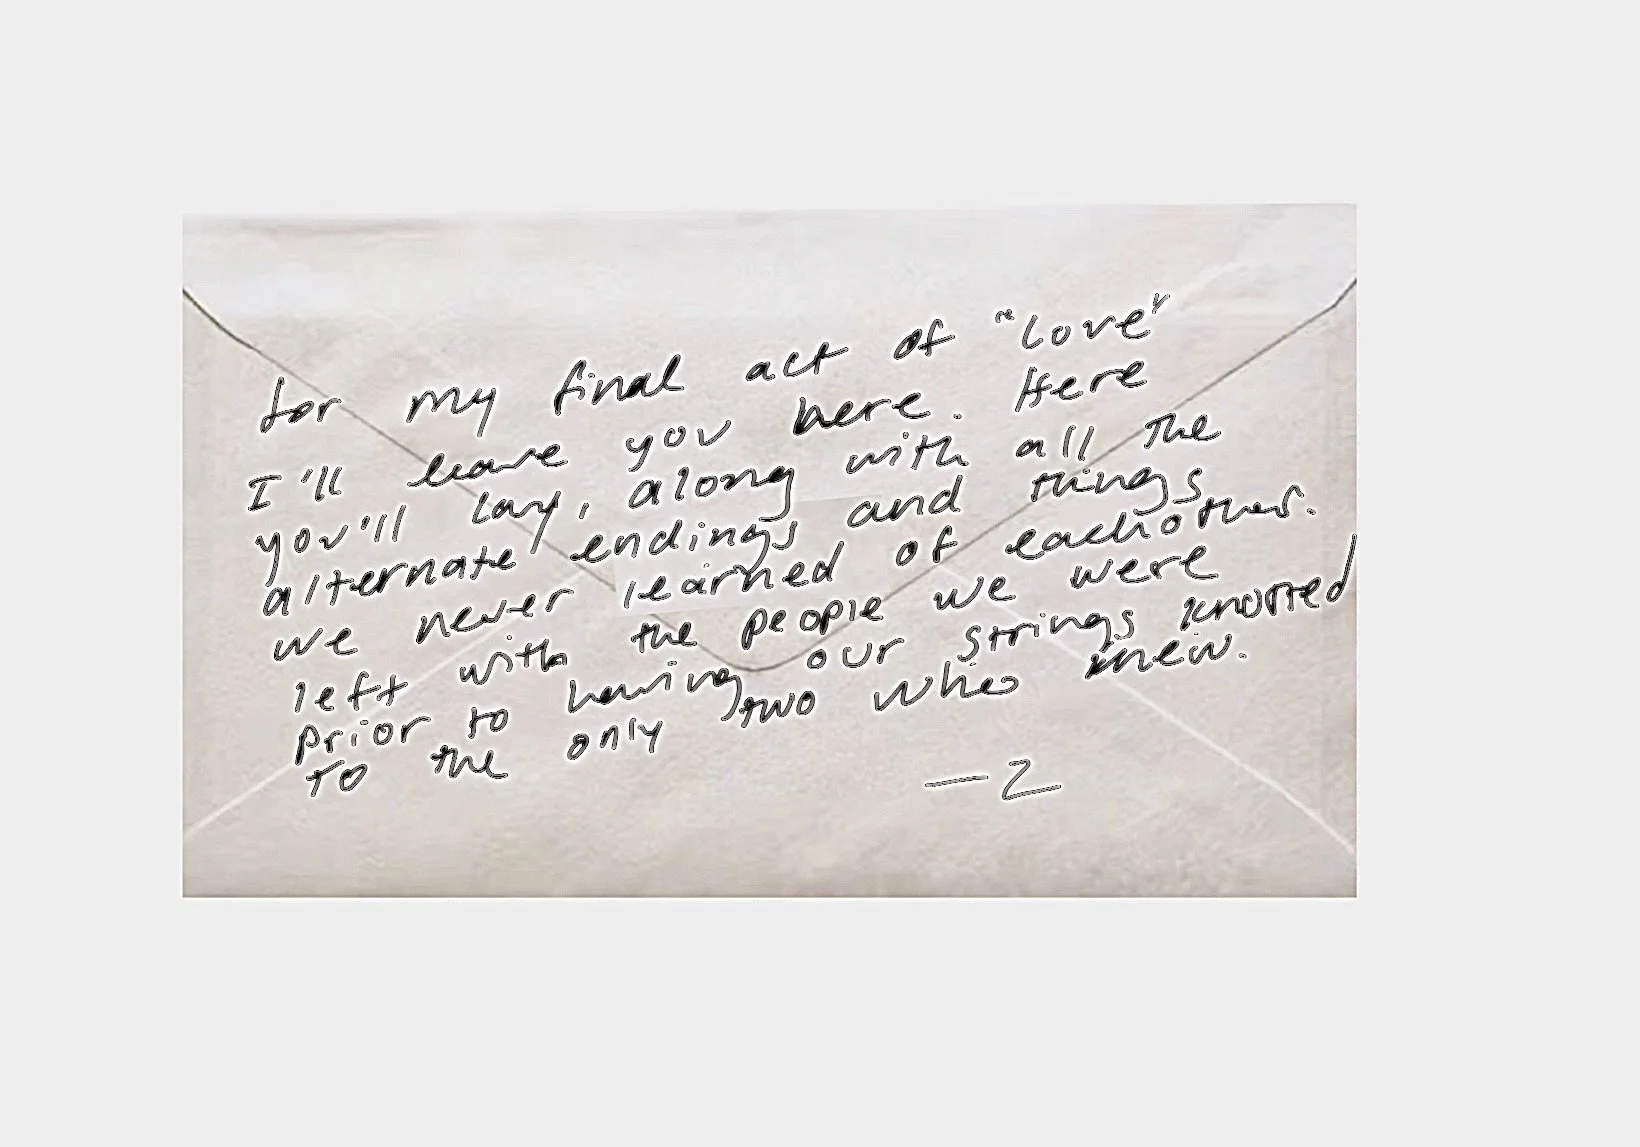 for my final act of "love"
I'll leave you here. Here
you'll lay, along with all the
alternate endings and things
we never learned of eachother.
left with the people we were
prior to having our strings knotted
to the only two who knew.
—Z